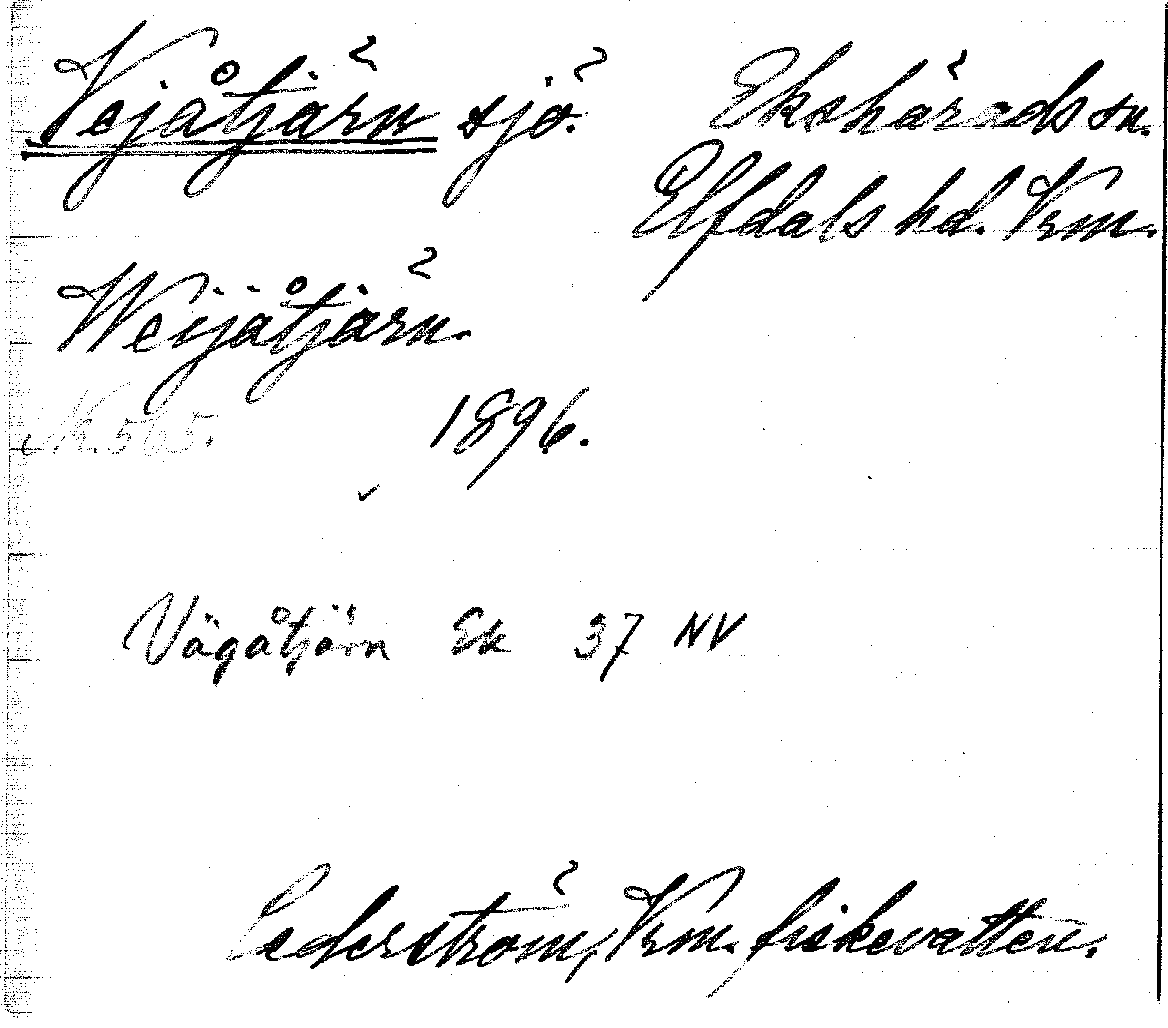 Vejåtjärn sjö.
Ekshärads sn.
Elfdals hd. Vrm.
Weijåtjärn.
Nr. 565. 1896.
Vägåtjärn Ek 37 NV
Cederström, Vrm. fiskevatten.